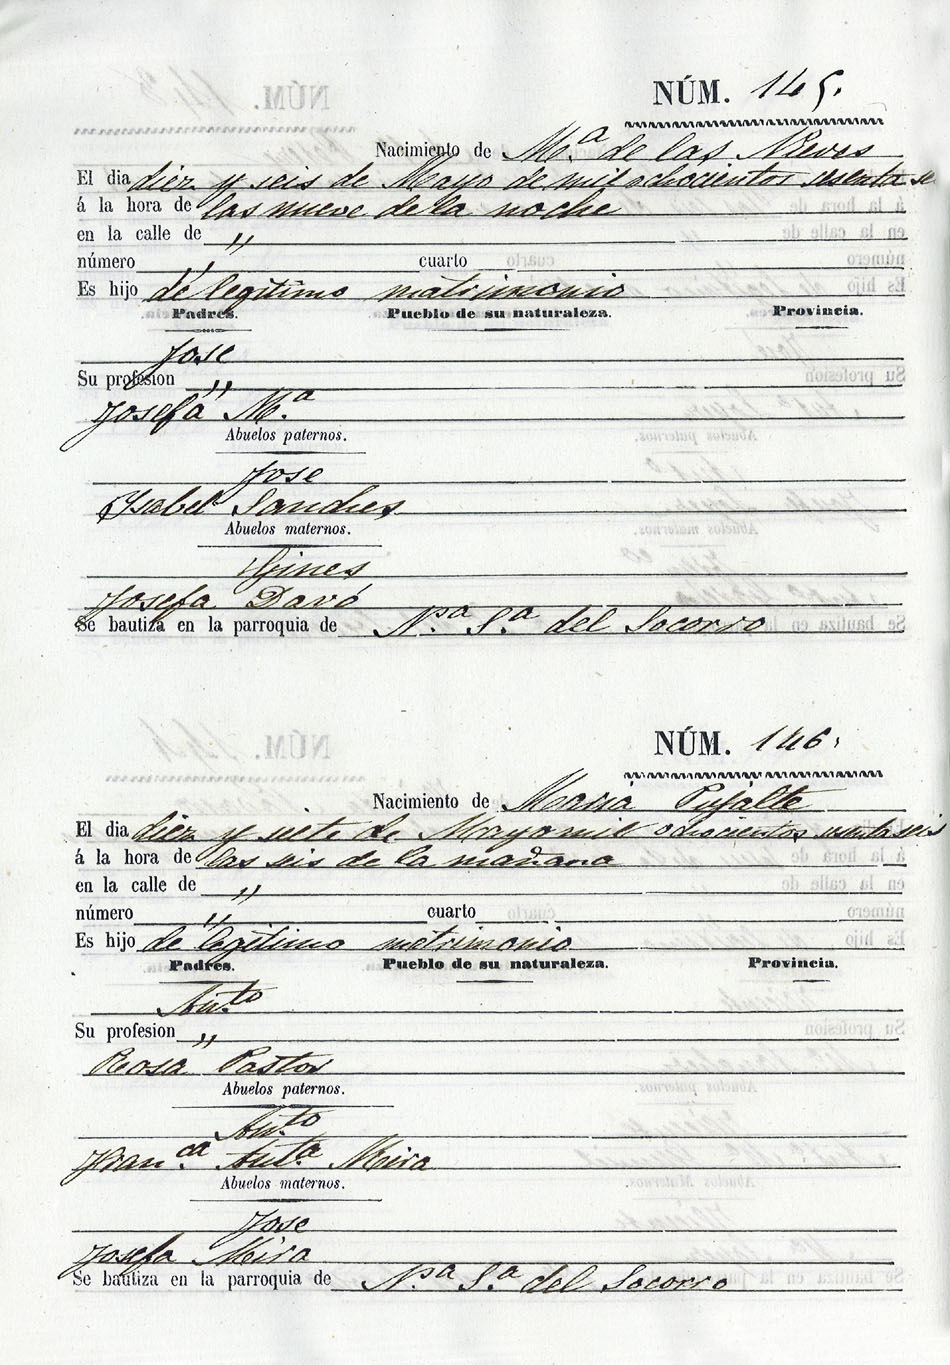 NÚM. 145.
Nacimiento de M.ª de las Nieves
El dia diez y seis de Mayo de mil ochocientos sesenta se
á la hora de las nueve de la noche
en la calle de "
número " cuarto
Es hijo de legitimo matrimonio
Padres. Pueblo de su naturaleza. Provincia.
Jose
Su profesion "
Josefa M.ª
Abuelos paternos.
Jose
Ysabel Sanches
Abuelos maternos.
Gines
Josefa Davó
Se bautiza en la parroquia de N.ª S.ª del Socorro
NÚM. 146.
Nacimiento de Maria Pujalte
El dia diez y siete de Mayo mil ochocientos sesenta seis
á la hora de las seis de la mañana
en la calle de "
número " cuarto
Es hijo de legitimo matrimonio
Padres. Pueblo de su naturaleza. Provincia.
Ant.to
Su profesion "
Rosa Pastor
Abuelos paternos.
Ant.to
Fran.ca Ant.a Mira
Abuelos maternos.
Jose
Josefa Mira
Se bautiza en la parroquia de N.ª S.ª del Socorro